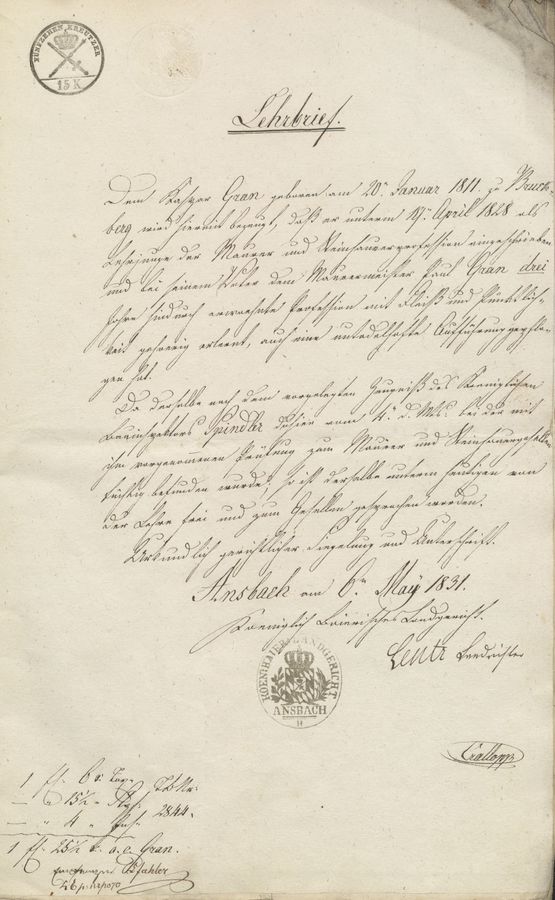 FÜNFZEHEN KREUTZER
15 K
Lehrbrief.
Dem Kaspar Gran geboren am 20n. Januar 1811. zu Bruck-
berg wird hiemit bezeugt, daß er unterm 19n. April 1828 als
Lehrjunge der Maurer und Steinhauerprofession eingeschrieben
und bei seinem Vater dem Maurermeister Paul Gran drei
Jahre hindurch erwaehnte Profession mit Fleiß und Pünktlich-
keit gehoerig erlernt, auch eine untadelhafte Aufführung gepflo-
gen hat.
Da derselbe nach dem vorgelegten Zeugniß des Koeniglichen
Bauinspektors Spindler dahier vom 4n. d. Mts. bei der mit
ihm vorgenommenen Prüfung zum Maurer und Steinhauergesellen
tüchtig befunden wurde; so ist derselbe unterm heutigen von
der Lehre frei und zum Gesellen gesprochen worden.
Urkundlich gerichtlicher Siegelung und Unterschrift.
Ansbach am 6n. May 1831.
Koeniglich Baierisches Landgericht.
KOENIGL. BAIER. LANDGERICHT
ANSBACH
Lentz Landrichter
1 fl. 6 x. Tax.
— " 15½ "
— " 4 "
2844.
1 fl. 25½ x. a. e. Gran.